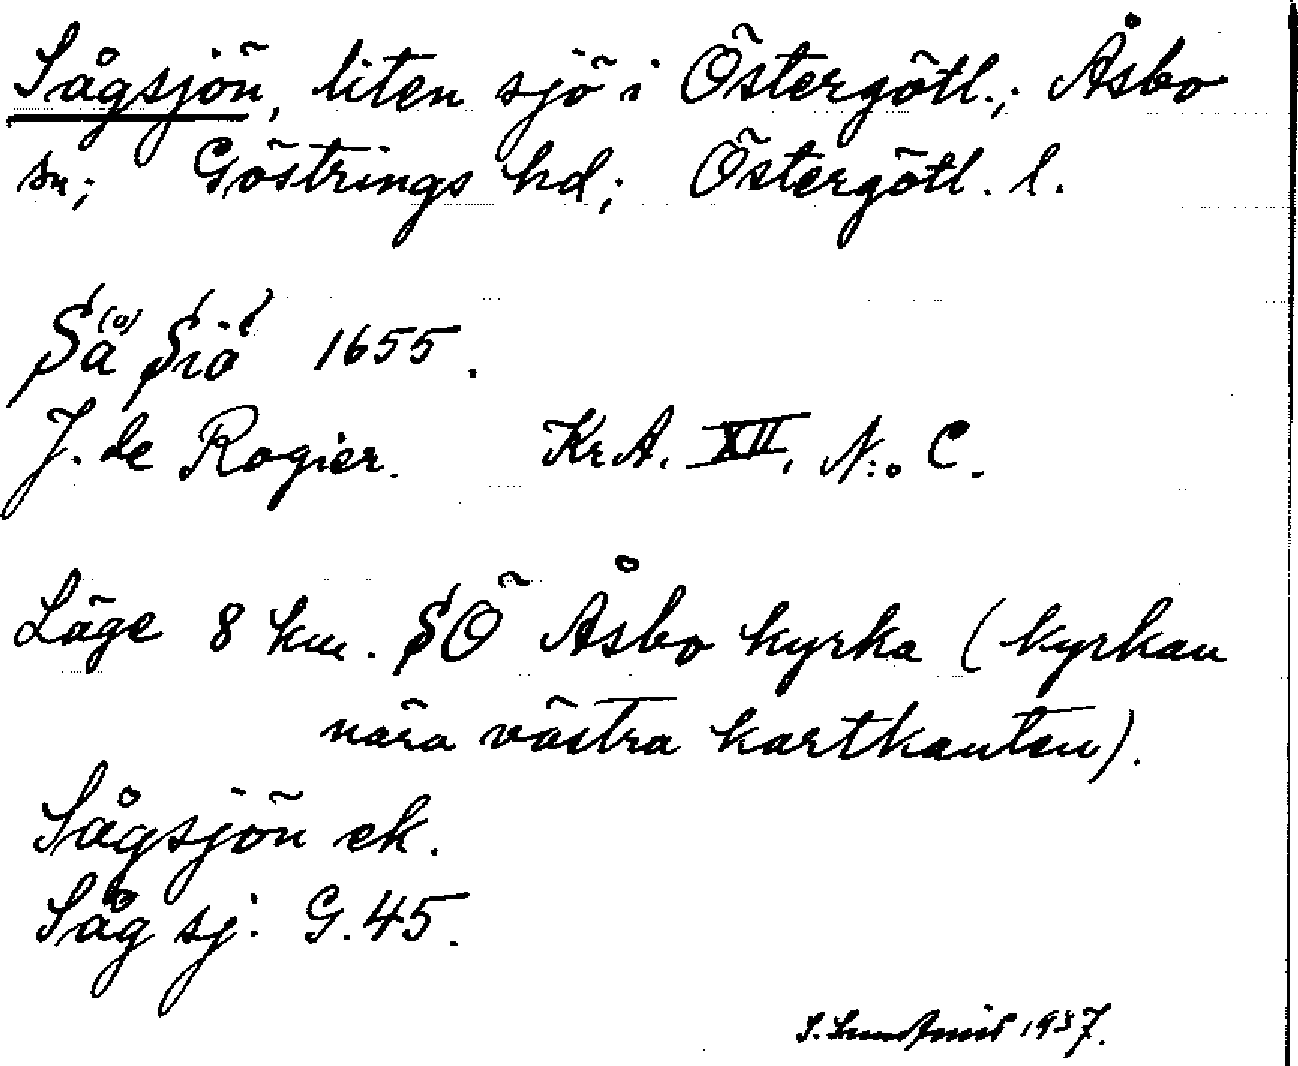 Sågsjön, liten sjö i Östergötl.; Åsbo
sn; Göstrings hd; Östergötl. l.
Så(o) Siö 1655.
J. de Rogier. KrA. XII. N:o C.
Läge 8 km. SÖ Åsbo kyrka (kyrkan
nära västra kartkanten).
Sågsjön ek.
Såg sj: G. 45.
S. 1937.